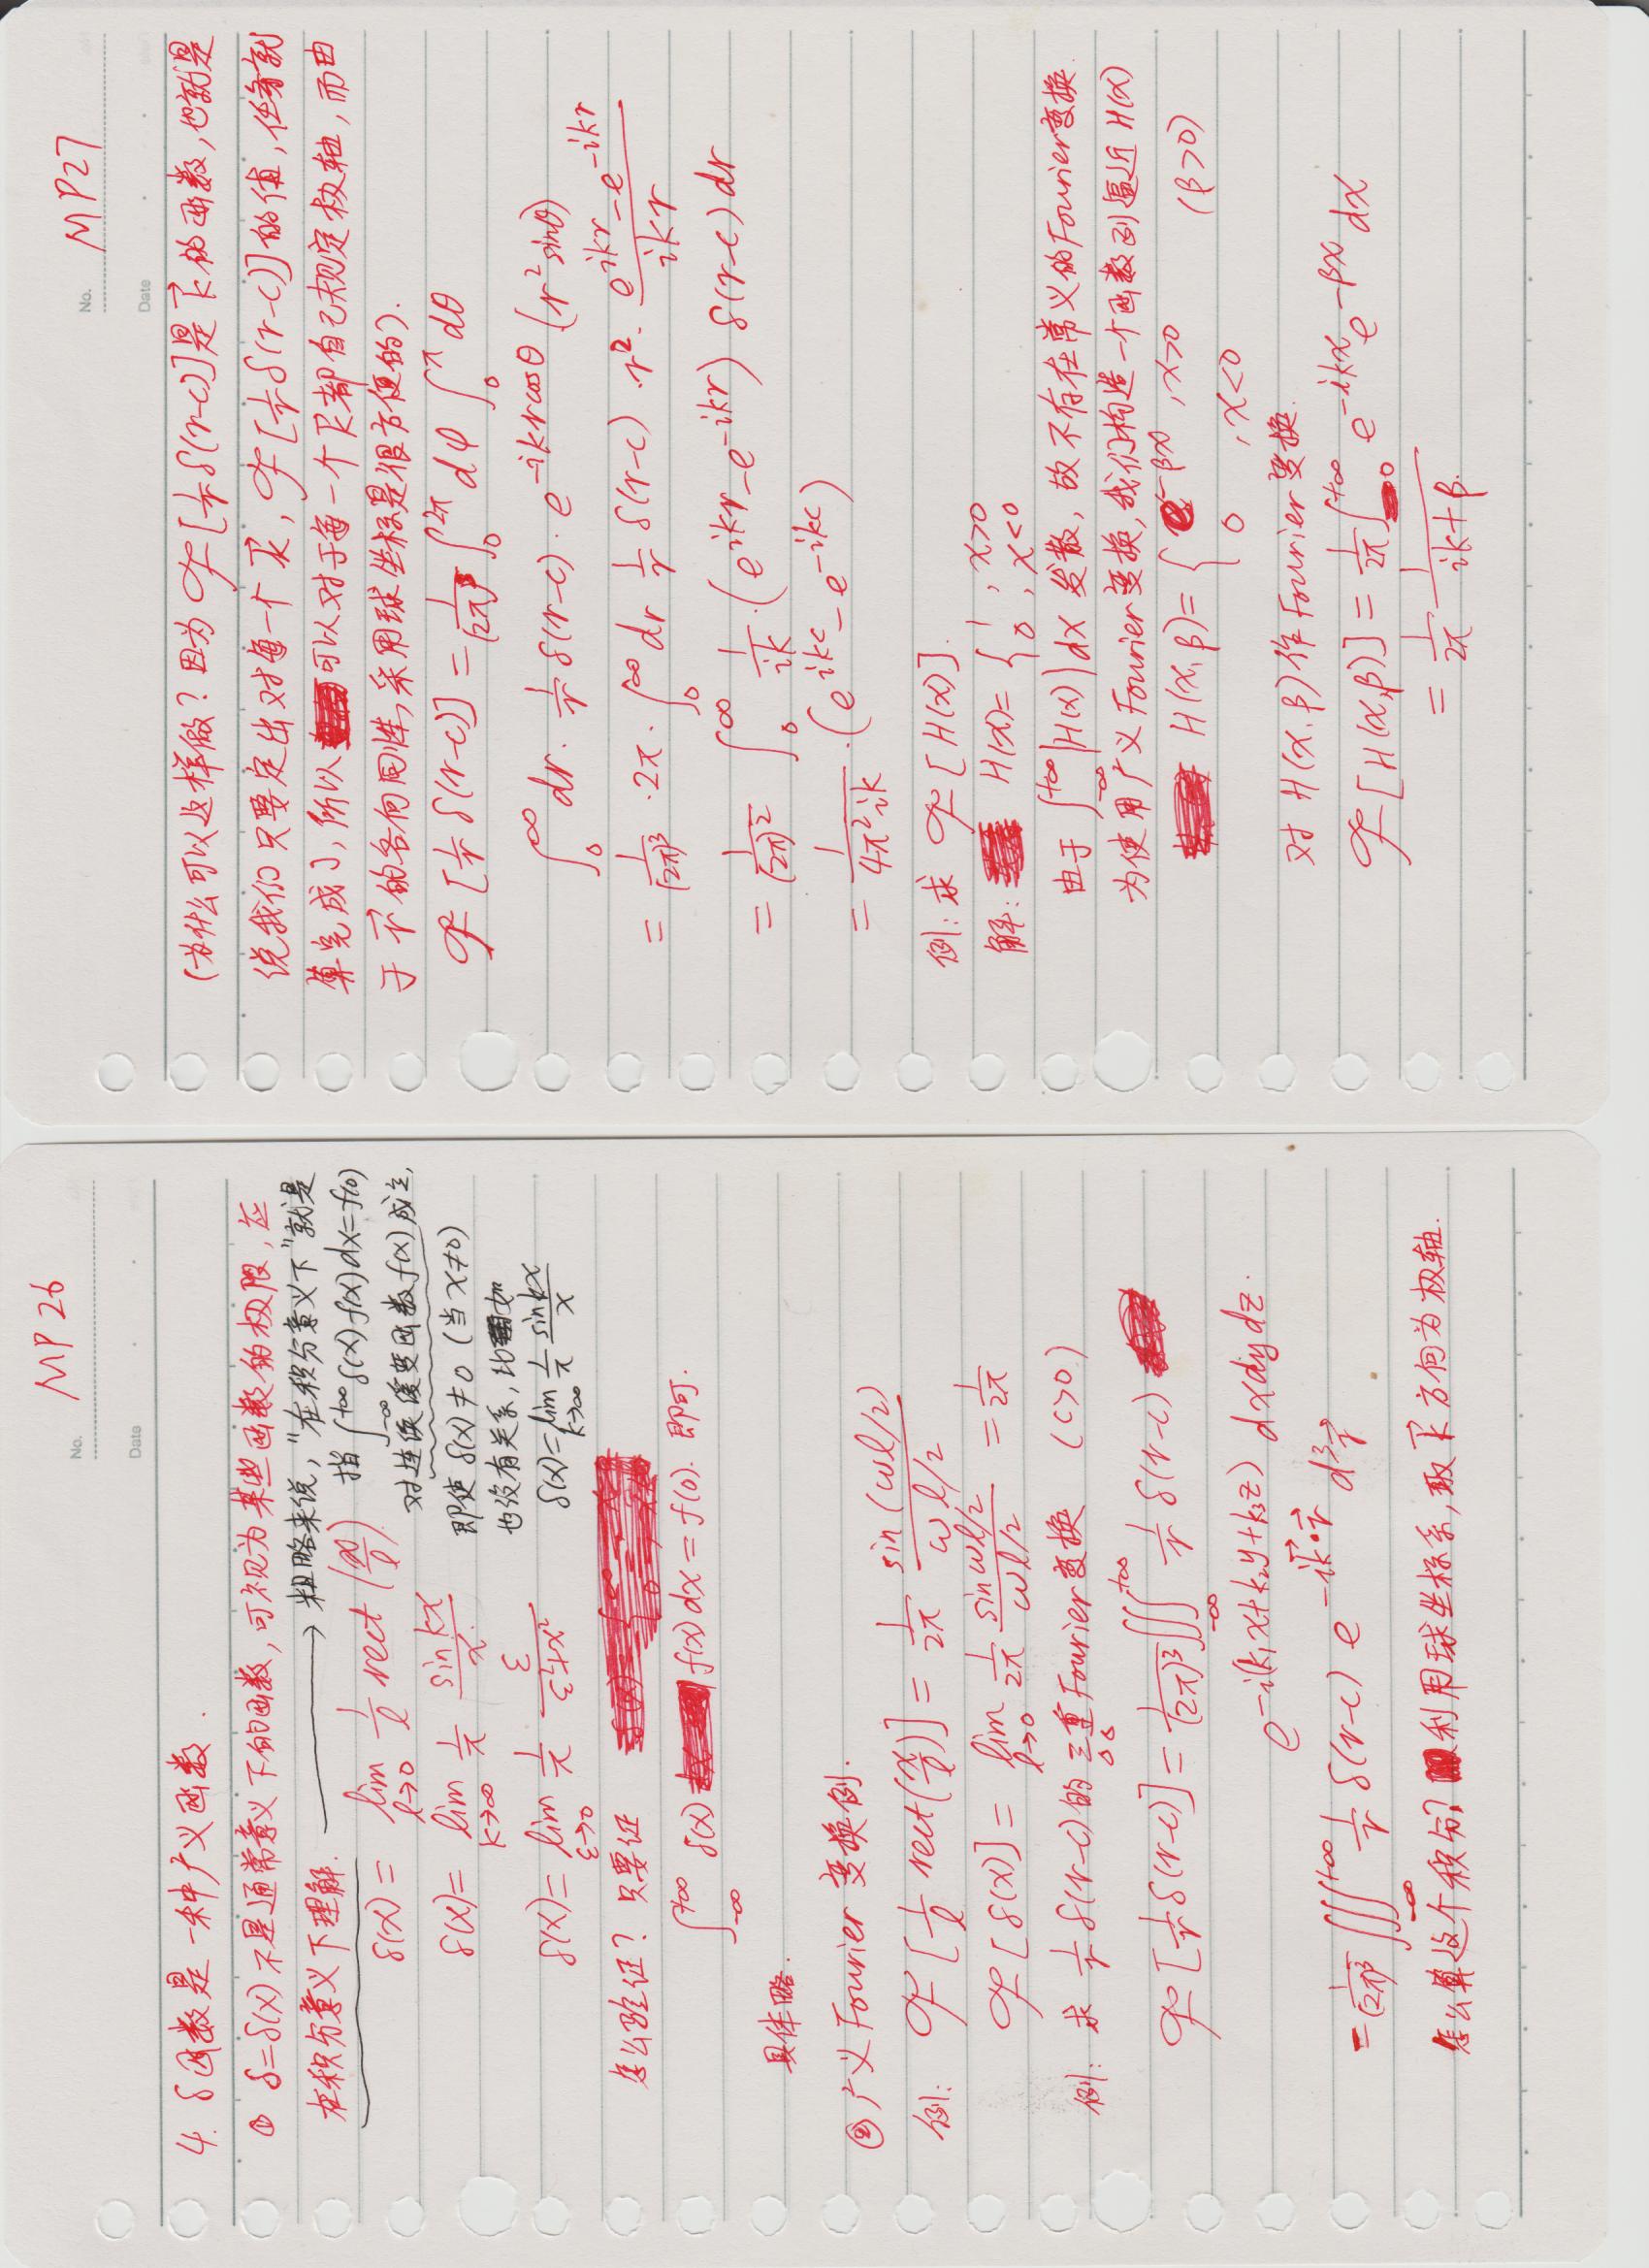 MP 26
No.
Date
4. δ函数是一种广义函数.
① δ=δ(x) 不是通常意义下的函数, 可视为某些函数的极限, 应
在积分意义下理解.
→ 粗略来说, "在积分意义下"就是
指 ∫_{-∞}^{+∞} δ(x) f(x) dx = f(0)
对连续缓变函数 f(x) 成立,
即使 δ(x) ≠ 0 (当 x≠0)
也没有关系, 比如
δ(x) = lim_{k→∞} 1/π sinkx/x
δ(x) = lim_{l→0} 1/l rect(x/l).
δ(x) = lim_{k→∞} 1/π sinkx/x.
δ(x) = lim_{ε→0} 1/π ε/(ε²+x²)
怎么验证? 只要证
∫_{-∞}^{+∞} δ(x) f(x) dx = f(0). 即可.
具体略.
② 广义 Fourier 变换例.
例: ℱ[1/l rect(x/l)] = 1/2π sin(ωl/2)/(ωl/2)
ℱ[δ(x)] = lim_{l→0} 1/2π (sinωl/2)/(ωl/2) = 1/2π
例: 求 1/r δ(r-c) 的三重Fourier变换 (c>0)
ℱ[1/r δ(r-c)] = 1/(2π)³ ∭_{-∞}^{+∞} 1/r δ(r-c)
e^{-i(k₁x+k₂y+k₃z)} dxdydz.
= 1/(2π)³ ∭_{-∞}^{+∞} 1/r δ(r-c) e^{-i k⃗·r⃗} d³r⃗
怎么算这个积分? 利用球坐标系, 取 k⃗ 方向为极轴.
MP27
No.
Date
(为什么可以这样做? 因为 ℱ[1/r δ(r-c)] 是 k⃗ 的函数, 也就是
说我们只要定出对每一个 k⃗, ℱ[1/r δ(r-c)] 的值, 任务就
算完成了, 所以可以对于每一个 k⃗ 都自己规定极轴, 而由
于 r⃗ 的各向同性, 采用球坐标是很方便的).
ℱ[1/r δ(r-c)] = 1/(2π)³ ∫_0^{2π} dφ ∫_0^π dθ
∫_0^∞ dr · 1/r δ(r-c) · e^{-ikrcosθ} (r² sinθ)
= 1/(2π)³ · 2π · ∫_0^∞ dr 1/r δ(r-c) · r² · (e^{ikr} - e^{-ikr})/(ikr)
= 1/(2π)² ∫_0^∞ 1/ik · (e^{ikr} - e^{-ikr}) δ(r-c) dr
= 1/(4π²ik) · (e^{ikc} - e^{-ikc})
例: 求 ℱ[H(x)].
解: H(x) = { 1 , x>0
0 , x<0
由于 ∫_{-∞}^{+∞} |H(x)| dx 发散, 故不存在常义的Fourier变换.
为使用广义Fourier变换, 我们构造一个函数列逼近 H(x)
H(x, β) = { e^{-βx} , x>0 (β>0)
0 , x<0
对 H(x, β) 作 Fourier 变换.
ℱ[H(x,β)] = 1/2π ∫_0^{+∞} e^{-ikx} e^{-βx} dx
= 1/2π 1/(ik+β).